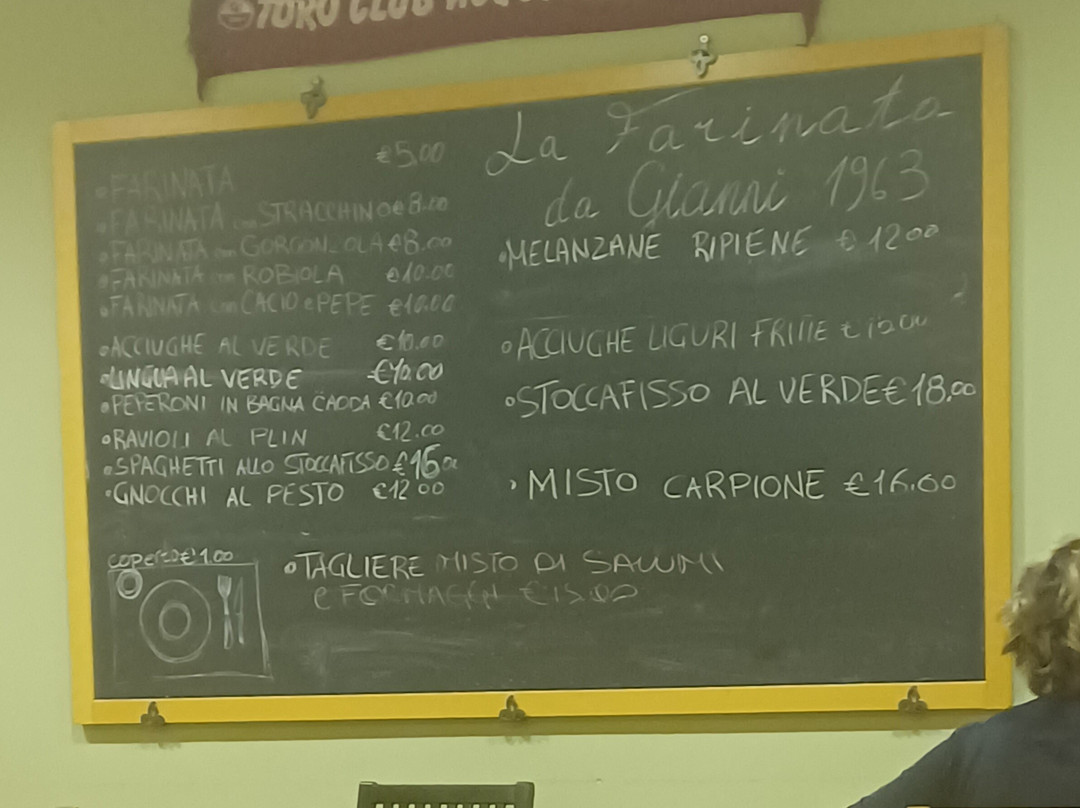 TORO CLUB
La Farinata
da Gianni 1963
•FARINATA €5,00
•FARINATA con STRACCHINO €8.00
•FARINATA con GORGONZOLA €8.00
•FARINATA con ROBIOLA €10.00
•FARINATA con CACIO e PEPE €10.00
•ACCIUGHE AL VERDE €10.00
•LINGUA AL VERDE €10.00
•PEPERONI IN BAGNA CAODA €10.00
•RAVIOLI AL PLIN €12.00
•SPAGHETTI ALLO STOCCAFISSO €16
•GNOCCHI AL PESTO €12 00
COPERTO €1.00
•MELANZANE RIPIENE € 12 00
•ACCIUGHE LIGURI FRITTE € 15.00
•STOCCAFISSO AL VERDE €18.00
•MISTO CARPIONE €16.00
•TAGLIERE MISTO DI SALUMI
e FORMAGGI €15.00